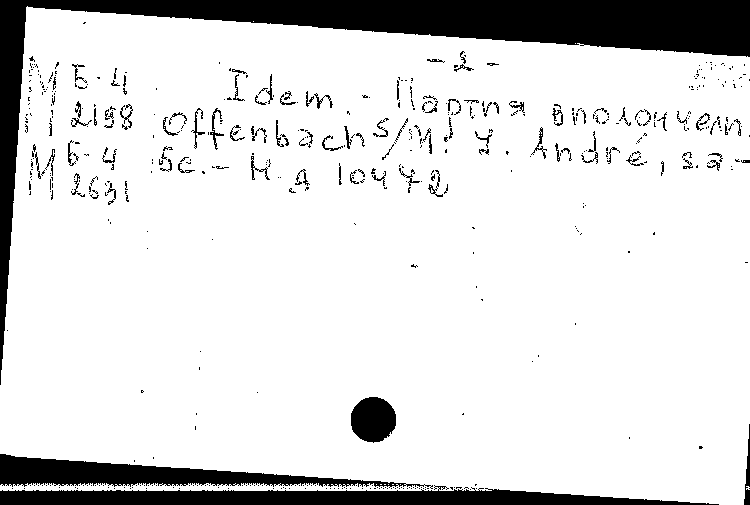 - 2 -
М Б-4 2198 Idem. - Партия виолончели.
Offenbach s/M: J. André, s.a. -
М Б-4 2631 5с. - Н.д 10472